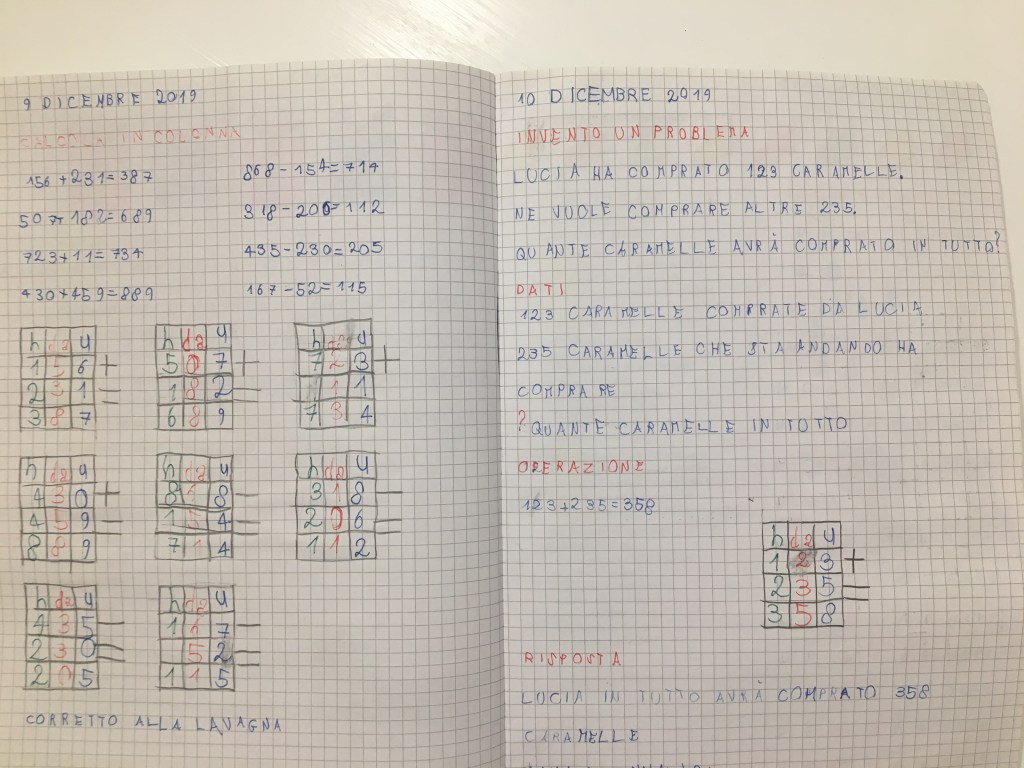 9 DICEMBRE 2019
CALCOLA IN COLONNA
156+231=387
868-154=714
507+182=689
318-206=112
723+11=734
435-230=205
430+459=889
167-52=115
h da u
1 5 6 +
2 3 1 =
3 8 7
h da u
5 0 7 +
1 8 2 =
6 8 9
h da u
7 2 3 +
1 1
7 3 4
h da u
4 3 0 +
4 5 9 —
8 8 9
h da u
8 6 8 —
1 5 4 =
7 1 4
h da u
3 1 8 —
2 0 6 =
1 1 2
h da u
4 3 5 —
2 3 0 =
2 0 5
h da u
1 6 7 —
5 2 =
1 1 5
CORRETTO ALLA LAVAGNA
10 DICEMBRE 2019
INVENTO UN PROBLEMA
LUCIA HA COMPRATO 123 CARAMELLE.
NE VUOLE COMPRARE ALTRE 235.
QUANTE CARAMELLE AVRÀ COMPRATO IN TUTTO?
DATI
123 CARAMELLE COMPRATE DA LUCIA
235 CARAMELLE CHE STA ANDANDO HA
COMPRARE
? QUANTE CARAMELLE IN TUTTO
OPERAZIONE
123+235=358
h da u
1 2 3 +
2 3 5 =
3 5 8
RISPOSTA
LUCIA IN TUTTO AVRÀ COMPRATO 358
CARAMELLE